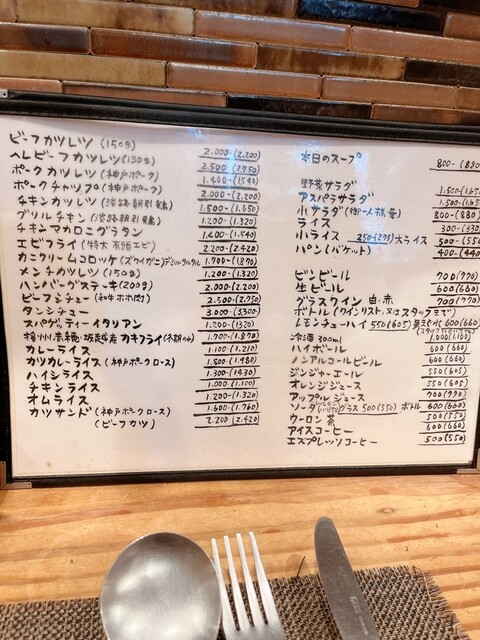 ビーフカツレツ (150g) 2.000-(2.200)
ヘレビーフカツレツ(130g) 2.500-(2.750)
ポークカツレツ (神戸ポーク) 1.400-(1.540)
ポークチャップ (神戸ポーク) 2.000-(2.200)
チキンカツレツ (淡路朝引鶏) 1.500-(1.650)
グリルチキン (淡路朝引鶏) 1.200-(1.320)
チキンマカロニグラタン 1.400-(1.540)
エビフライ (特大有頭エビ) 2.200-(2.420)
カニクリームコロッケ (ズワイガニ) 1.700-(1.870)
メンチカツレツ (150g) 1.200-(1.320)
ハンバーグステーキ(200g) 2.000-(2.200)
ビーフシチュー (和牛ホホ肉) 2.500-(2.750)
タンシチュー 3.000-(3.300)
スパゲッティーイタリアン 1.200-(1.320)
播州赤穂・坂越産 カキフライ(冬期のみ) 1.700-(1.870)
カレーライス 1.100-(1.210)
カツカレーライス (神戸ポークロース) 1.800-(1.980)
ハイシライス 1.300-(1.430)
チキンライス 1.000-(1.100)
オムライス 1.200-(1.320)
カツサンド (神戸ポークロース) 1.600-(1.760)
(ビーフカツ) 2.200-(2.420)
本日のスープ 800-(880)
野菜サラダ 1.500-(1.65
アスパラサラダ 1.500-(1.65
小サラダ (御一人様量) 800-(880)
ライス 300-(330
小ライス 250-(275) 大ライス 500-(550
パン (バケット) 400-(440
ビンビール 700(770)
生ビール 600(660)
グラスワイン 白・赤 700(770)
ボトル (ワインリスト、又はスタッフまで)
レモンチューハイ 550(605) 600(660)
冷酒 300ml 1.000(1.100)
ハイボール 600(660)
ノンアルコールビール 600(660)
ジンジャーエール 550(605)
オレンジジュース 550(605)
アップルジュース 700(770)
ソーダ グラス 500(550) ボトル 600(660)
ウーロン茶 500(550)
アイスコーヒー 600(660)
エスプレッソコーヒー 500(550)